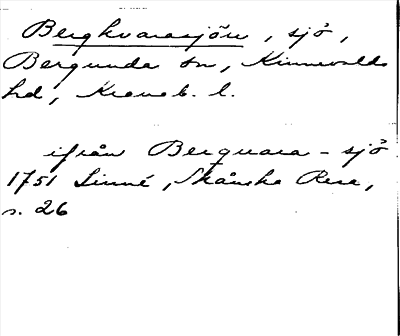 Bergkvarasjön, sjö,
Bergunda sn, Kinnevalds
hd, Kronob. l.
ifrån Berquara-sjö
1751 Linné, Skånska Resa,
s. 26